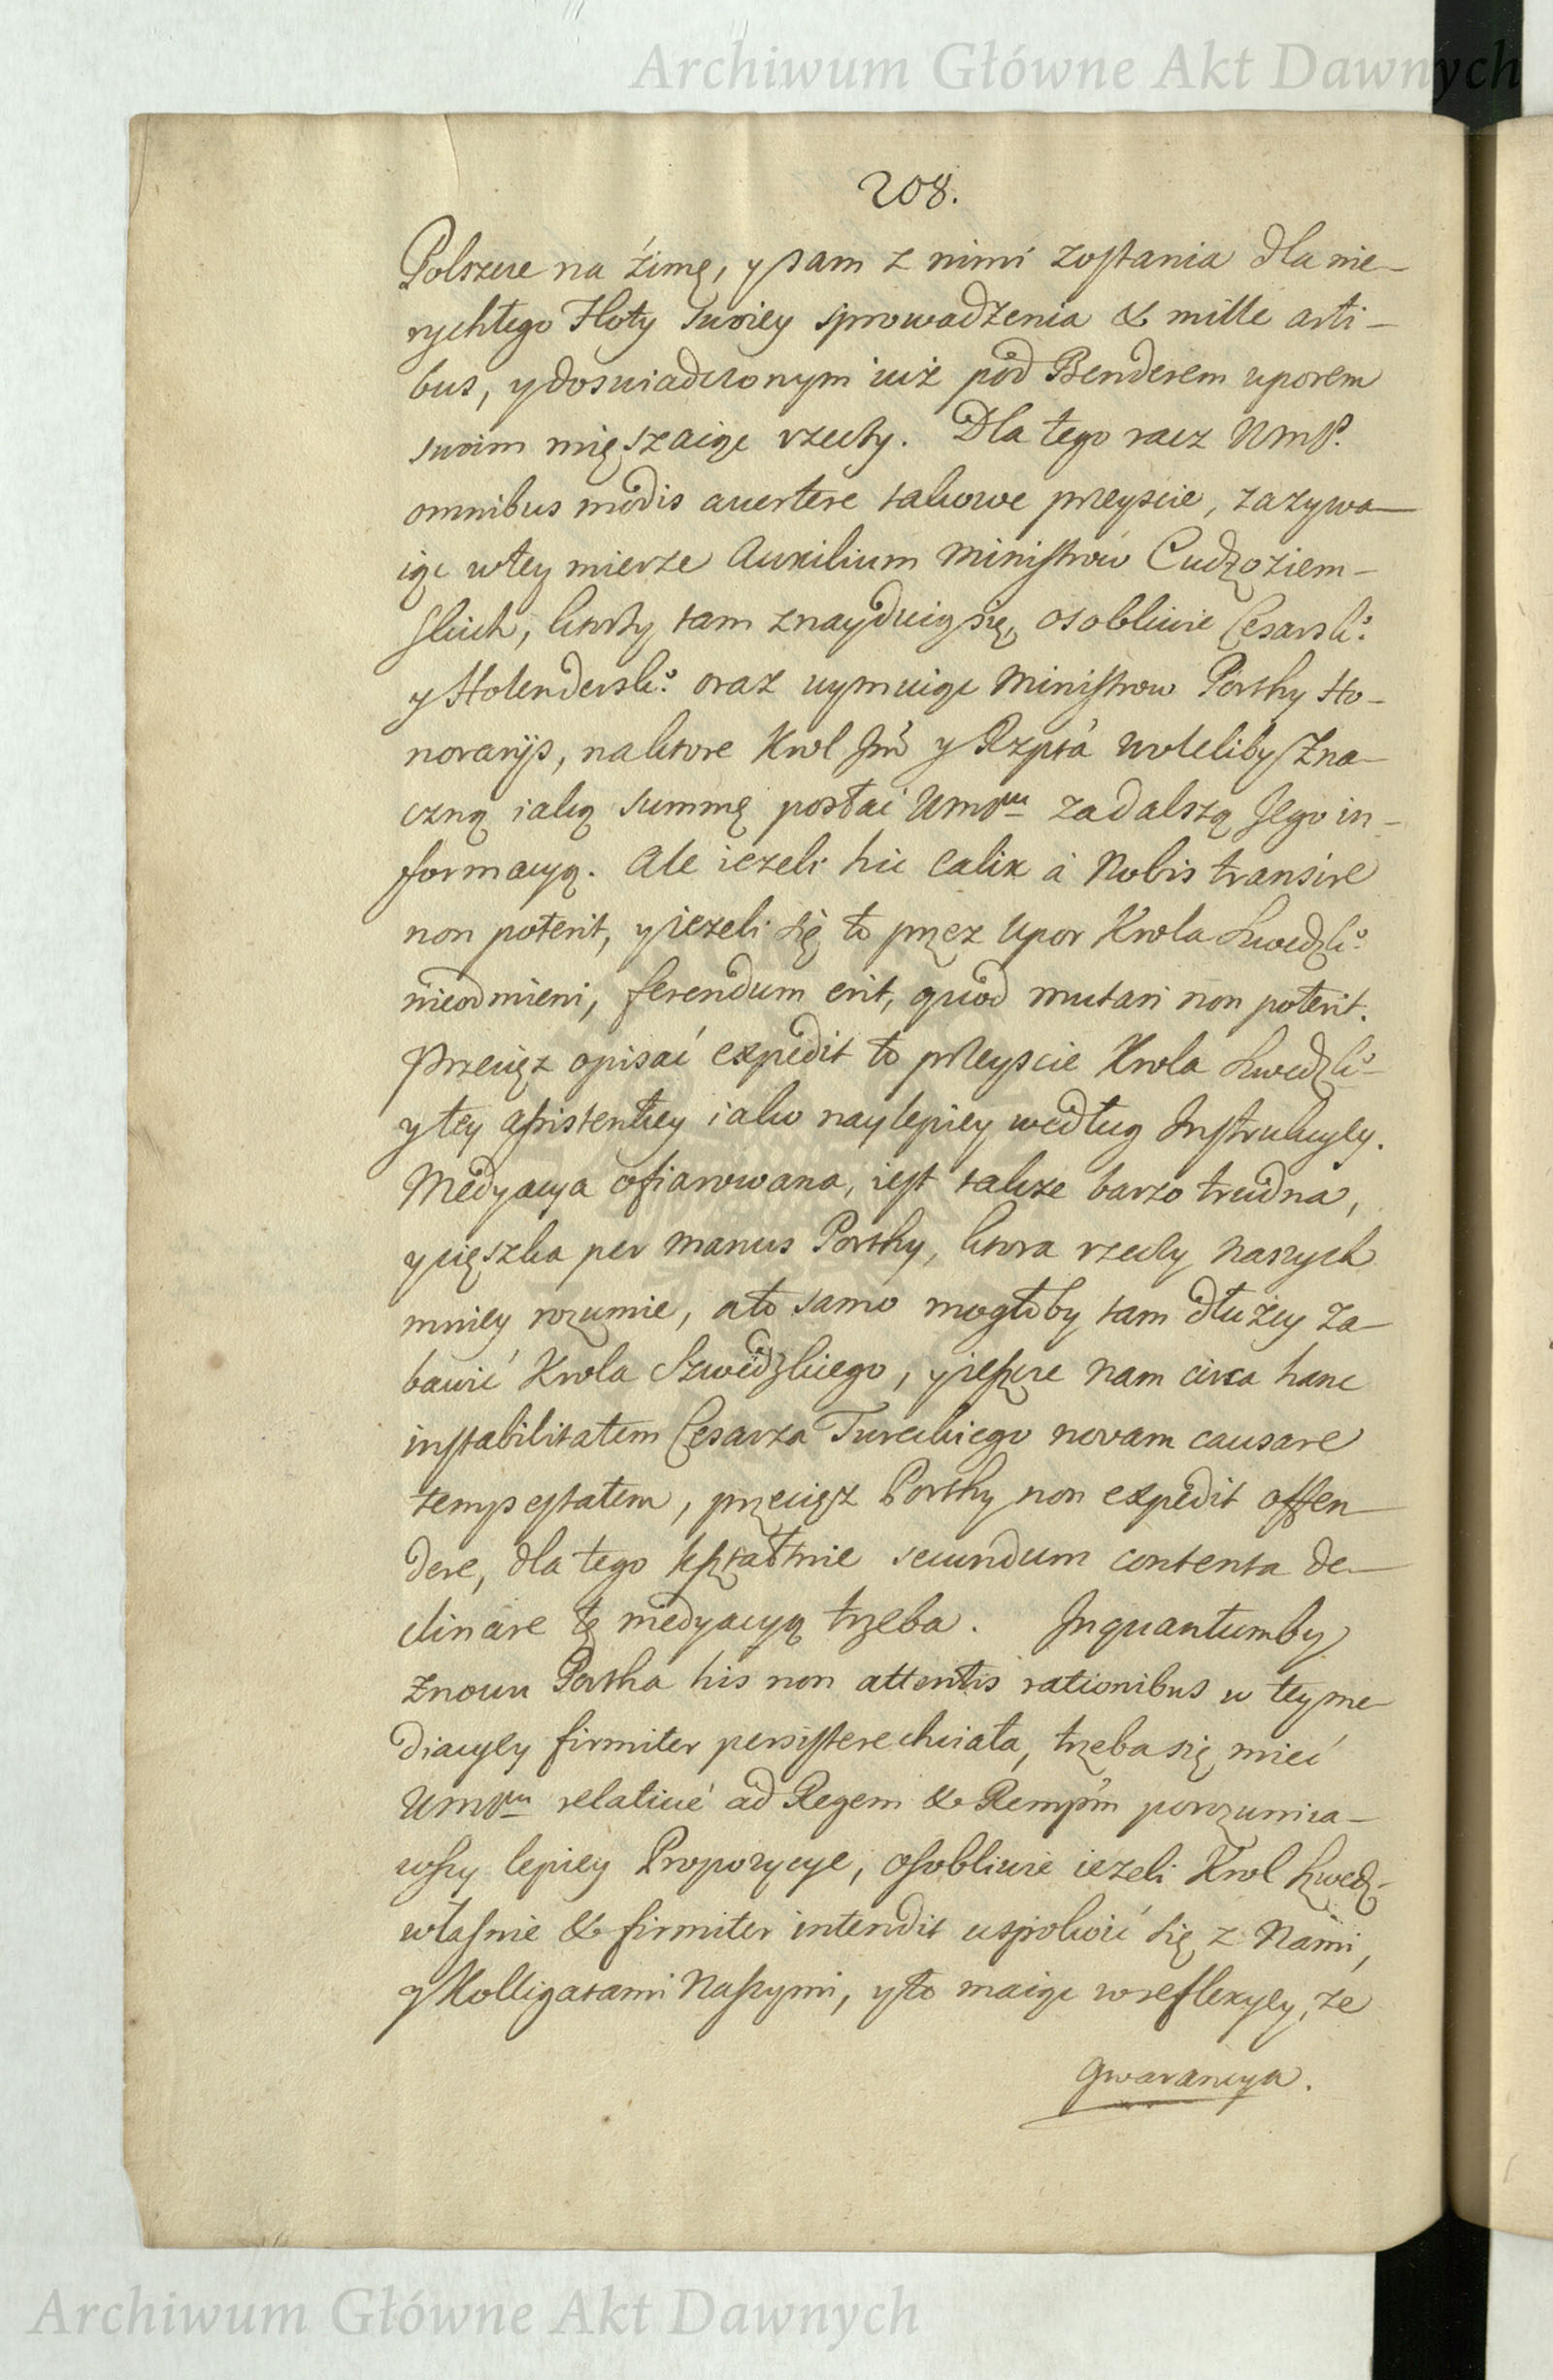 Archiwum Główne Akt Dawnych
208.
Polszcze na źimę, y sam z nimi zostania dla nie-
rychłego Floty swoiey sprowadzenia & mille arti-
bus, y doswiadczonym iuż pod Benderem uporem
swoim mięszaiąc rzeczy. Dla tego racz WmP.
omnibus modis avertere takowe przeyscie, zazywa-
iąc w tey mierze Auxilium Ministrow Cudzoziem-
skich, ktorzy tam znayduią się, osobliwie Cesarsko.
y Holendersko. oraz uymuiąc Ministrow Porthy Ho-
norarijs, na ktore Krol Jmć y Rzpta woleliby zna-
czną iaką summę posłać WmPnu za dalszą Jego in-
formacyą. Ale iezeli hic Calix à Nobis transire
non poterit, y iezeli się to przez upor Krola Szwedzko.
nieodmieni, ferendum erit, quod mutari non poterit.
Przecięz opisać expedit to przeyscie Krola Szwedzko
y tey assistentiey iako naylepiey według Instrukcyey.
Medyacya ofiarowana, iest takze barzo trudna,
y cięszka per manus Porthy, ktora rzeczy naszych
mniey rozumie, a to samo mogłoby tam dłużey za-
bawić Krola Szwedzkiego, y ieszcze nam circa hanc
instabilitatem Cesarza Tureckiego novam causare
tempestatem, przecięsz Porthy non expedit offen-
dere, dla tego kształtnie secundum contenta de-
clinare tę medyacyą trzeba. Inquantumby
znowu Portha his non attentis rationibus w tey me-
diacyey firmiter persistere chciała, trzeba się mieć
WmPnu relativé ad Regem & Rempm porozumia-
wszy lepiey Propozycye, osobliwie iezeli Krol Szwedz.
własnie & firmiter intendit uspokoić się z Nami,
y Kolligatami Naszymi, y to maiąc w reflexyey, że
Gwarancya.
Archiwum Główne Akt Dawnych